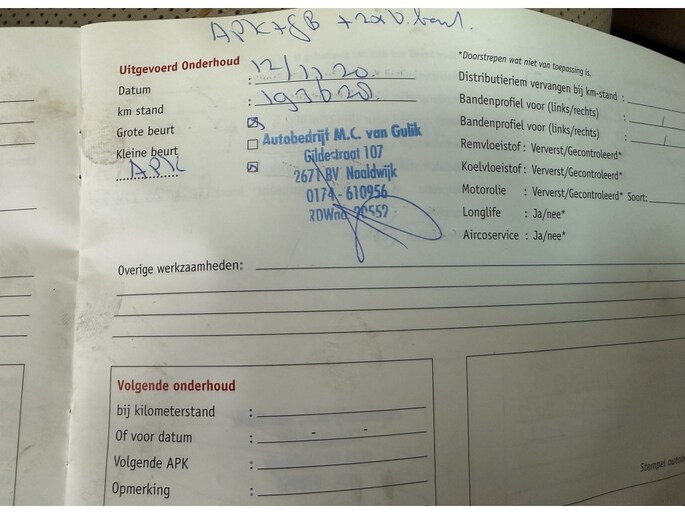 APK + GB + 2x V. band.
Uitgevoerd Onderhoud
Datum : 12/11 20
km stand : 193020
Grote beurt
Kleine beurt
APK
Autobedrijf M.C. van Gulik
Gildestraat 107
2671 BV Naaldwijk
0174 - 610956
RDWno. 20552
*Doorstrepen wat niet van toepassing is.
Distributieriem vervangen bij km-stand :
Bandenprofiel voor (links/rechts) : /
Bandenprofiel voor (links/rechts) : /
Remvloeistof : Ververst/Gecontroleerd*
Koelvloeistof : Ververst/Gecontroleerd*
Motorolie : Ververst/Gecontroleerd* Soort:
Longlife : Ja/nee*
Aircoservice : Ja/nee*
Overige werkzaamheden:
Volgende onderhoud
bij kilometerstand :
Of voor datum : - -
Volgende APK :
Opmerking :
Stempel